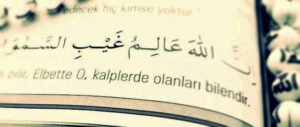 edecek hiç kimse yoktur."
اللّٰهَ عَالِمُ غَيْبِ
bilir. Elbette O, kalplerde olanları bilendir.